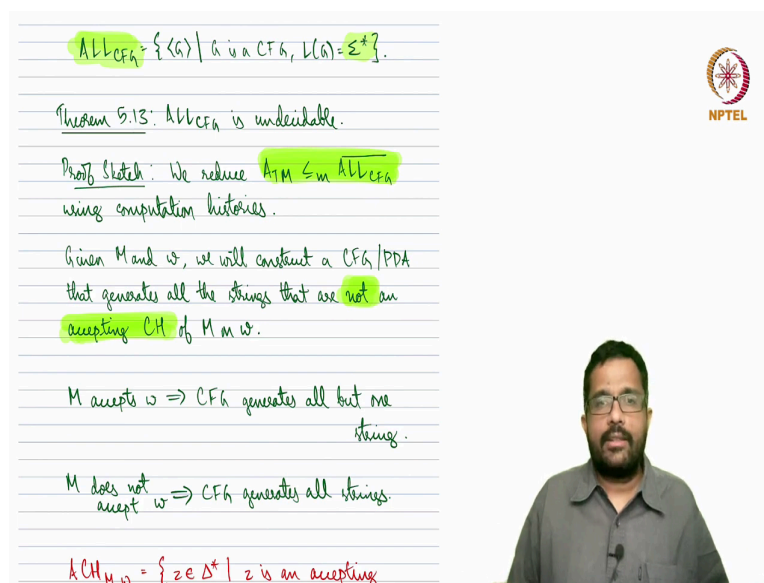 ALL_CFG = {⟨G⟩ | G is a CFG, L(G) = Σ*}.
Theorem 5.13: ALL_CFG is undecidable.
Proof Sketch: We reduce A_TM ≤_m \overline{ALL_CFG}
using computation histories.
Given M and w, we will construct a CFG/PDA
that generates all the strings that are not an
accepting CH of M on w.
M accepts w ⇒ CFG generates all but one
string.
M does not
accept w ⇒ CFG generates all strings.
ACH_M,w = {z ∈ Δ* | z is an accepting
NPTEL